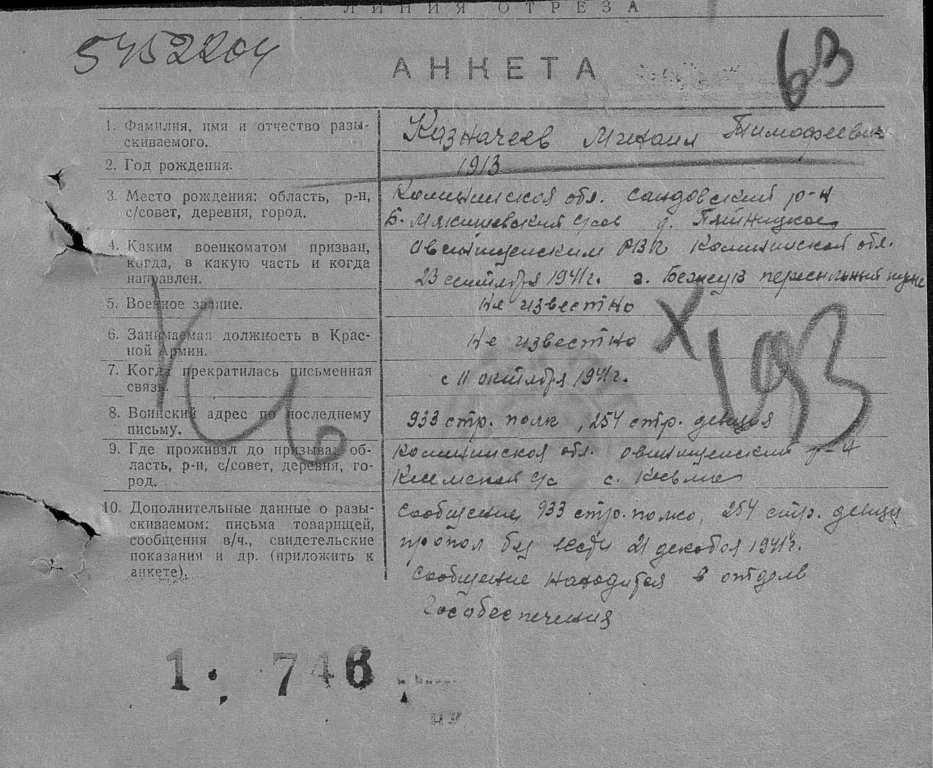 ЛИНИЯ ОТРЕЗА
5452204
АНКЕТА
63
1. Фамилия, имя и отчество разы-
скиваемого.
Казначеев Михаил Тимофеевич
2. Год рождения.
1913
3. Место рождения: область, р-н,
с/совет, деревня, город.
Калининской обл. Сандовский р-н
Б. Мякишевский с/сов д. Пятницкое
4. Каким военкоматом призван,
когда, в какую часть и когда
направлен.
Овинищенским РВК Калининской обл.
23 сентября 1941г. г. Бежецк пересыльный пункт
5. Военное звание.
не известно
6. Занимаемая должность в Крас-
ной Армии.
не известно
7. Когда прекратилась письменная
связь.
с 11 октября 1941г.
8. Воинский адрес по последнему
письму.
933 стр. полк, 254 стр. дивизия
9. Где проживал до призыва: об-
ласть, р-н, с/совет, деревня, го-
род.
Калининская обл. Овинищенский р-н
с/с с.
10. Дополнительные данные о разы-
скиваемом: письма товарищей,
сообщения в/ч., свидетельские
показания и др. (приложить к
анкете).
Сообщение 933 стр. полка, 254 стр. дивиз
пропал без вести 21 декабря 1941г.
Сообщение находится в отделе
Гособеспечения
193
1 746